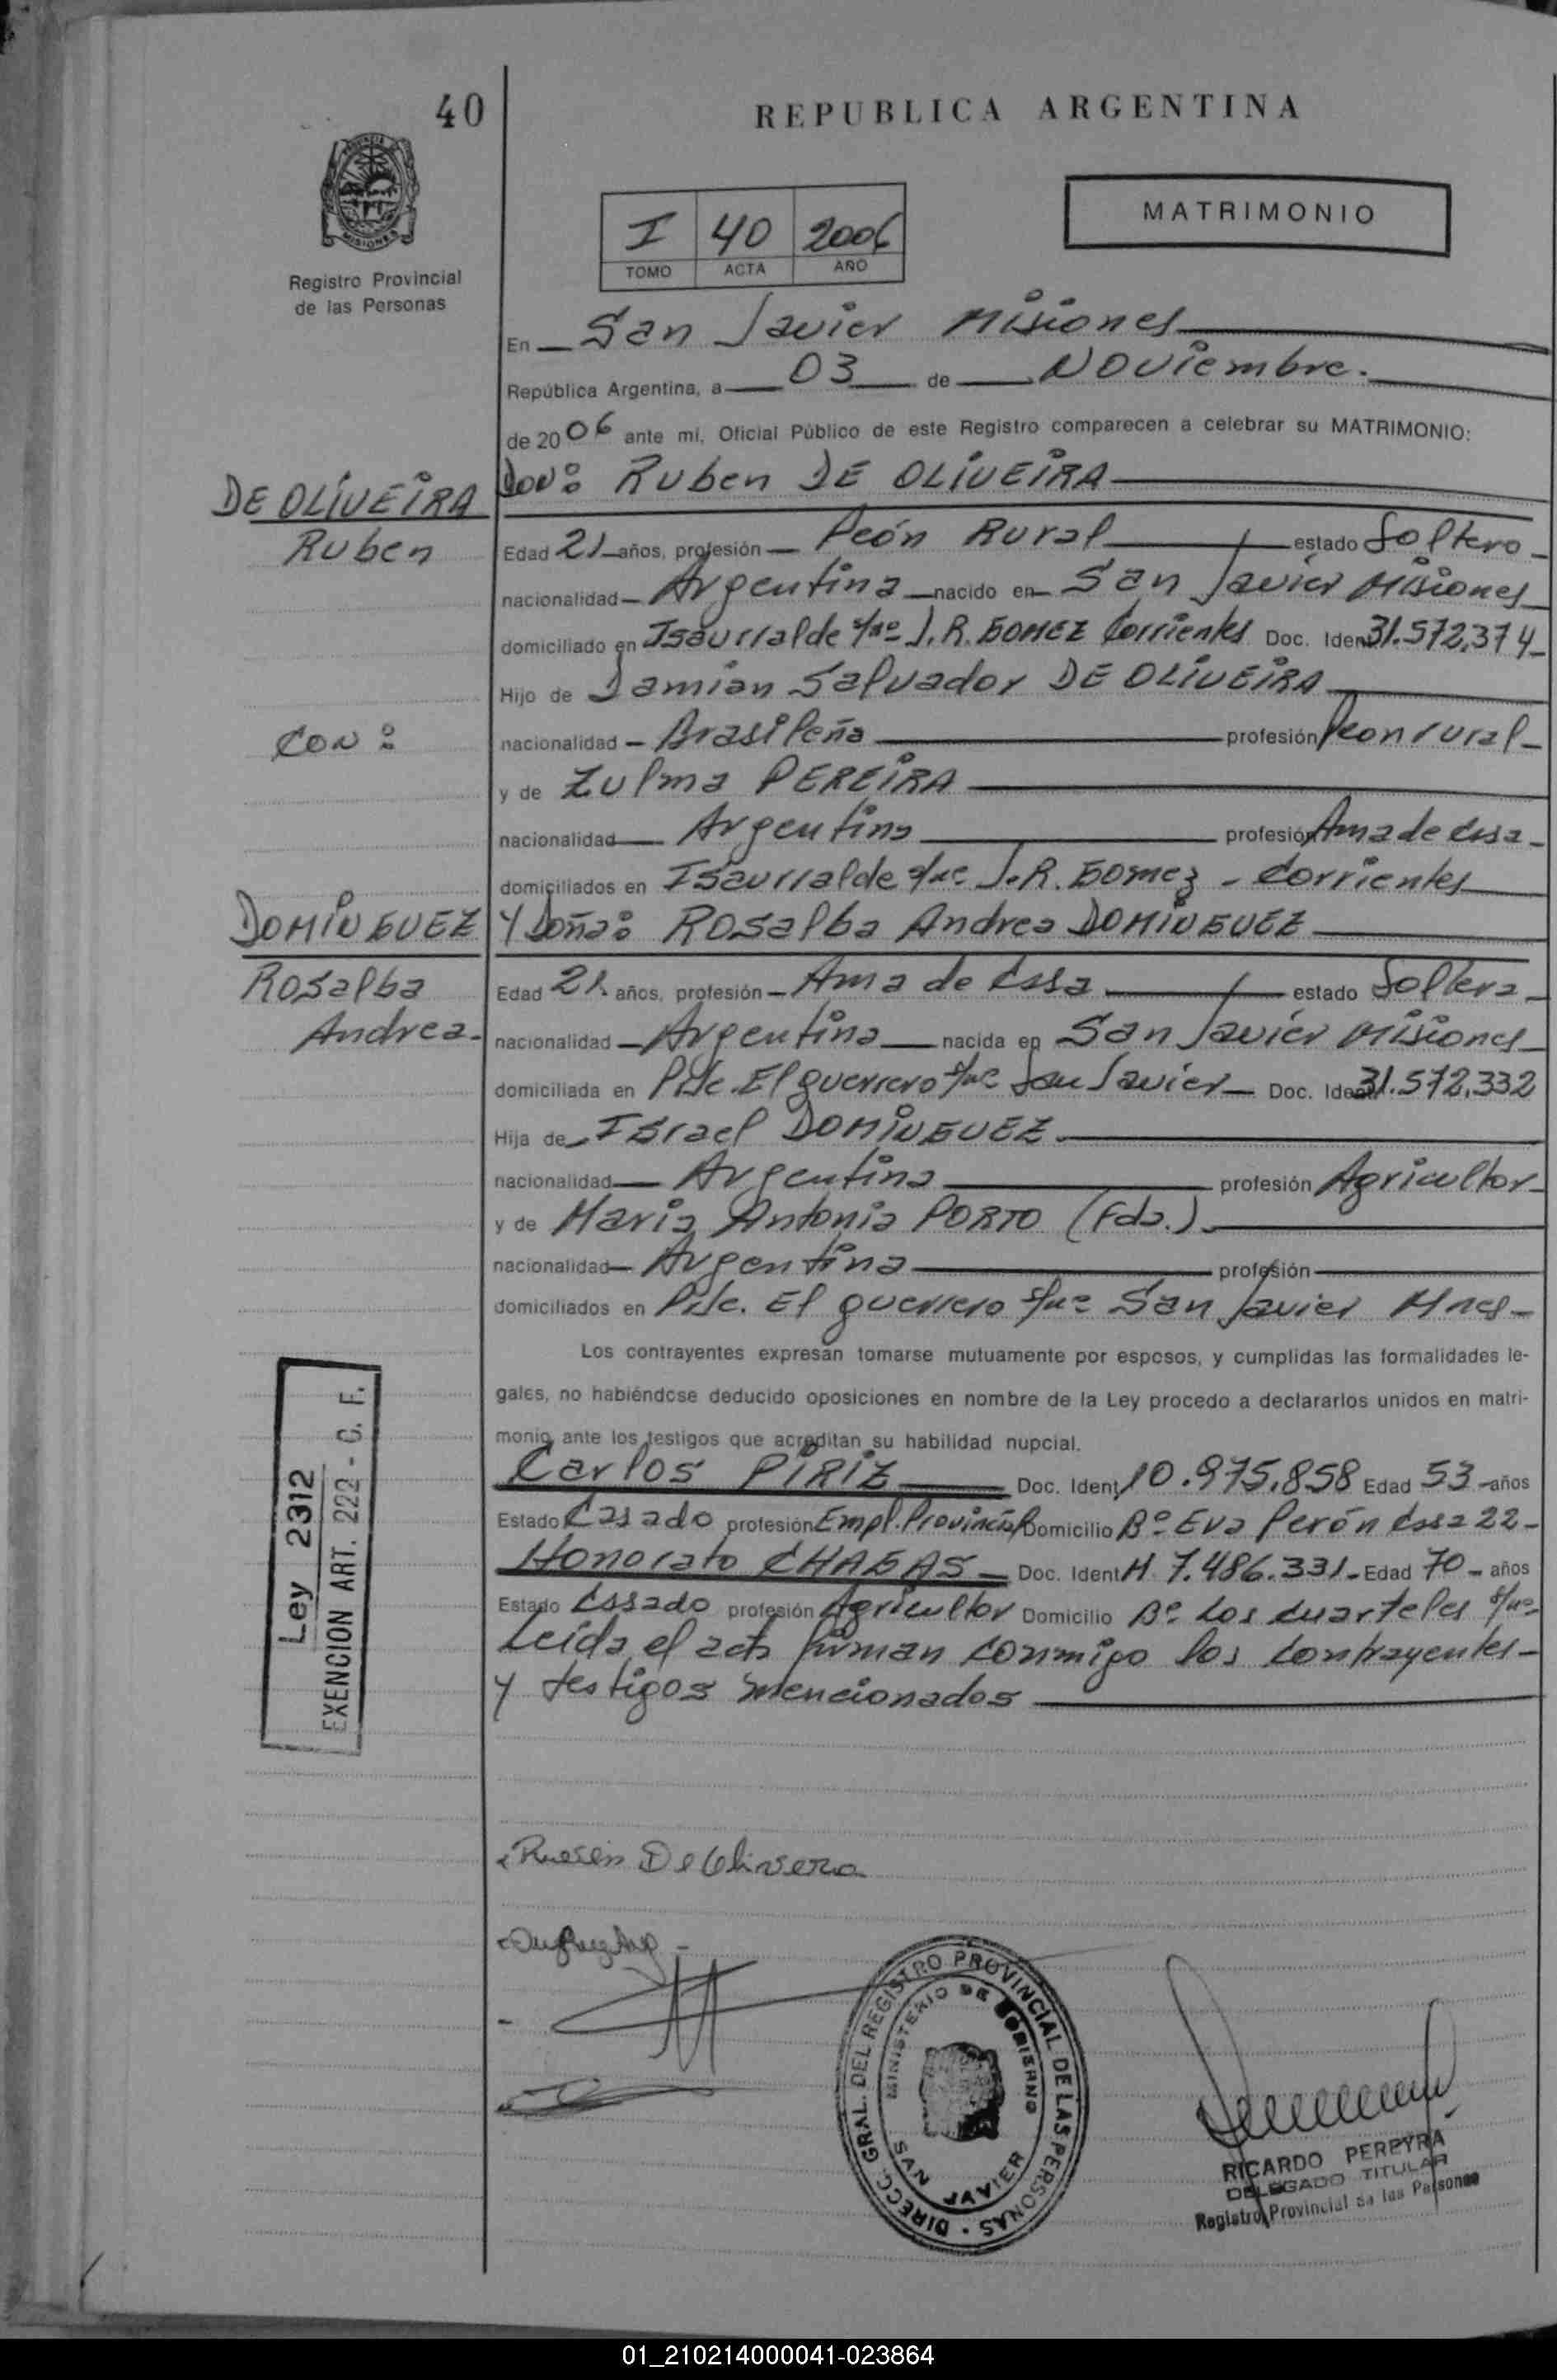 40
REPUBLICA ARGENTINA
MISIONES
Registro Provincial
de las Personas
I 40 2006
TOMO ACTA AÑO
MATRIMONIO
En San Javier Misiones
República Argentina, a 03 de Noviembre.
de 2006 ante mí, Oficial Público de este Registro comparecen a celebrar su MATRIMONIO:
DE OLIVEIRA
Ruben
Don: Ruben DE OLIVEIRA
Edad 21 años, profesión Peón Rural estado Soltero
nacionalidad Argentina nacido en San Javier Misiones
domiciliado en Isaurralde J. R. GOMEZ Corrientes Doc. Ident. 31.572.374
Hijo de Damian Salvador DE OLIVEIRA
CON:
nacionalidad Brasileña profesión Peon rural
y de Zulma PEREIRA
nacionalidad Argentina profesión Ama de casa
domiciliados en Isaurralde J. R. Gomez - Corrientes
DOMINGUEZ
Rosalba
Andrea
Y Doña: Rosalba Andrea DOMINGUEZ
Edad 21 años, profesión Ama de casa estado Soltera
nacionalidad Argentina nacida en San Javier Misiones
domiciliada en Pje. El guerrero San Javier Doc. Ident. 31.572.332
Hija de Israel DOMINGUEZ
nacionalidad Argentina profesión Agricultor
y de Maria Antonia PORTO (Fda.)
nacionalidad Argentina profesión
domiciliados en Pje. El guerrero San Javier Mnes
Los contrayentes expresan tomarse mutuamente por esposos, y cumplidas las formalidades le-
gales, no habiéndose deducido oposiciones en nombre de la Ley procedo a declararlos unidos en matri-
monio ante los testigos que acreditan su habilidad nupcial.
Carlos PIRIZ Doc. Ident. 10.975.858 Edad 53 años
Estado Casado profesión Empl. Provincial Domicilio Bº Eva Perón casa 22
Honorato CHAGAS Doc. Ident. M 7.486.331 Edad 70 años
Estado Casado profesión Agricultor Domicilio Bº Los cuarteles
Leida el acta firman conmigo los contrayentes
y testigos mencionados
Ley 2312
EXENCION ART. 222 - C. F.
Ruben De Olivera
DIRECC. GRAL. DEL REGISTRO PROVINCIAL DE LAS PERSONAS
MINISTERIO DE GOBIERNO
SAN JAVIER
RICARDO PEREYRA
DELEGADO TITULAR
Registro Provincial de las Personas
01_210214000041-023864